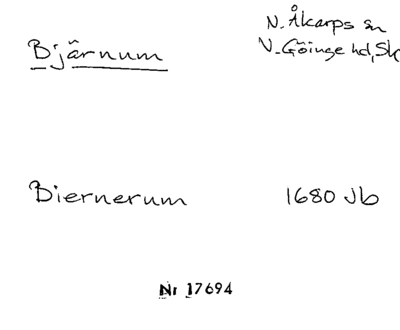 Bjärnum
N. Åkarps sn
V. Göinge hd, Sk
Biernerum 1680 Jb
Nr 17694